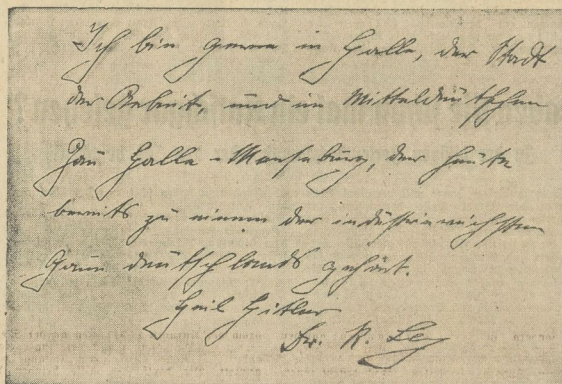 Ich bin gerne in Halle, der Stadt
der Arbeit, und im Mitteldeutschen
Gau Halle-Merseburg, der heute
bereits zu einem der industriereichsten
Gaue Deutschlands gehört.
Heil Hitler
Dr. R. Ley